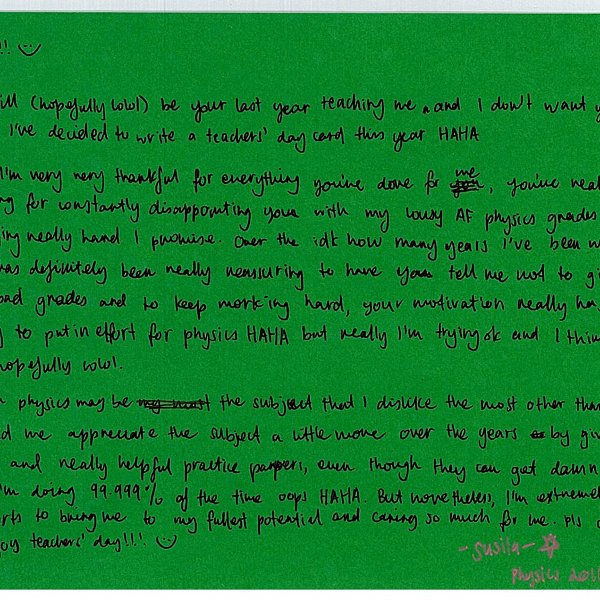 !! ☺
ill (hopefully lolol) be your last year teaching me and I don't want y
I've decided to write a teachers' day card this year HAHA
I'm very very thankful for everything you've done for me, you've real
ng for constantly disappointing you with my lousy AF physics grades
ing really hard I promise. Over the idk how many years I've been
as definitely been really reassuring to have you tell me not to gi
bad grades and to keep working hard, your motivation really ha
g to put in effort for physics HAHA but really I'm trying ok and I thin
hopefully lolol.
physics may be the subject that I dislike the most other tha
d me appreciate the subject a little more over the years by giv
and really helpful practice papers, even though they can get damn
I'm doing 99.999% of the time oops HAHA. But nonetheless, I'm extremel
rts to bring me to my fullest potential and caring so much for me. Pls
joy teachers' day!!! ☺
- Susila -
Physics